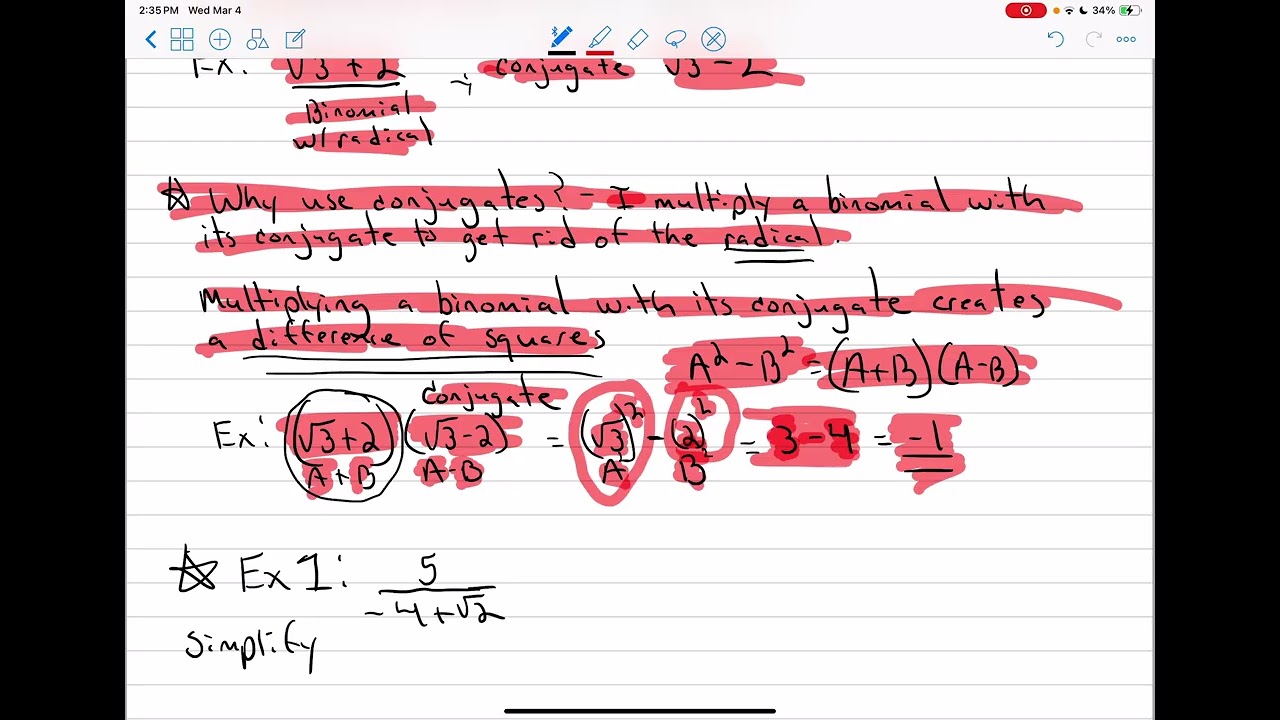 2:35 PM Wed Mar 4 34%
Ex: √3 + 2 → conjugate √3 - 2
Binomial
w/ radical
☆ Why use conjugates? - I multiply a binomial with
its conjugate to get rid of the radical.
Multiplying a binomial with its conjugate creates
a difference of squares
A² - B² = (A+B)(A-B)
conjugate
Ex: (√3+2)(√3-2) = (√3)² - (2)² = 3-4 = -1
A+B A-B A² B²
☆ Ex 1: 5/(-4+√2)
Simplify